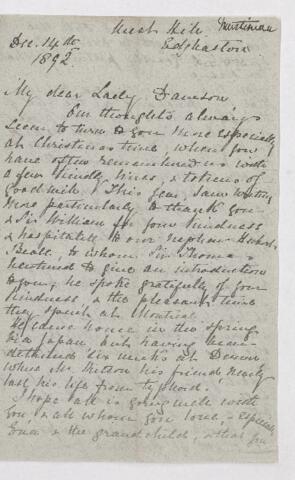 West Hill,
Edgbaston
Dec. 14th
1892.
My dear Lady Dawson
Our thoughts always
seem to turn to you more especially
at Christmas time, when you
have often remembered us with
a few kindly lines, & tokens of
goodwill. This year, I am writing
more particularly to thank you
& Sir William for your kindness
& hospitality to our nephew
Beale, to whom Sir Thomas
ventured to give an introduction
to you; he spoke gratefully of your
kindness, & the pleasant time
they spent at Montreal.
He came home in the spring
via Japan but having been
detained six weeks at
where Mr. his friend, nearly
lost his life from typhoid.
I hope all is going well with
you & all whom you love, - especially
Eva & the grandchild, & that you